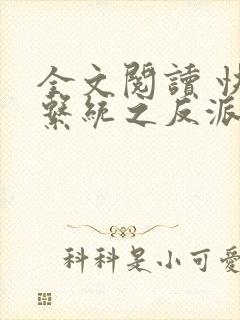 全文閱讀 快
繫統之反派
科科是小可愛